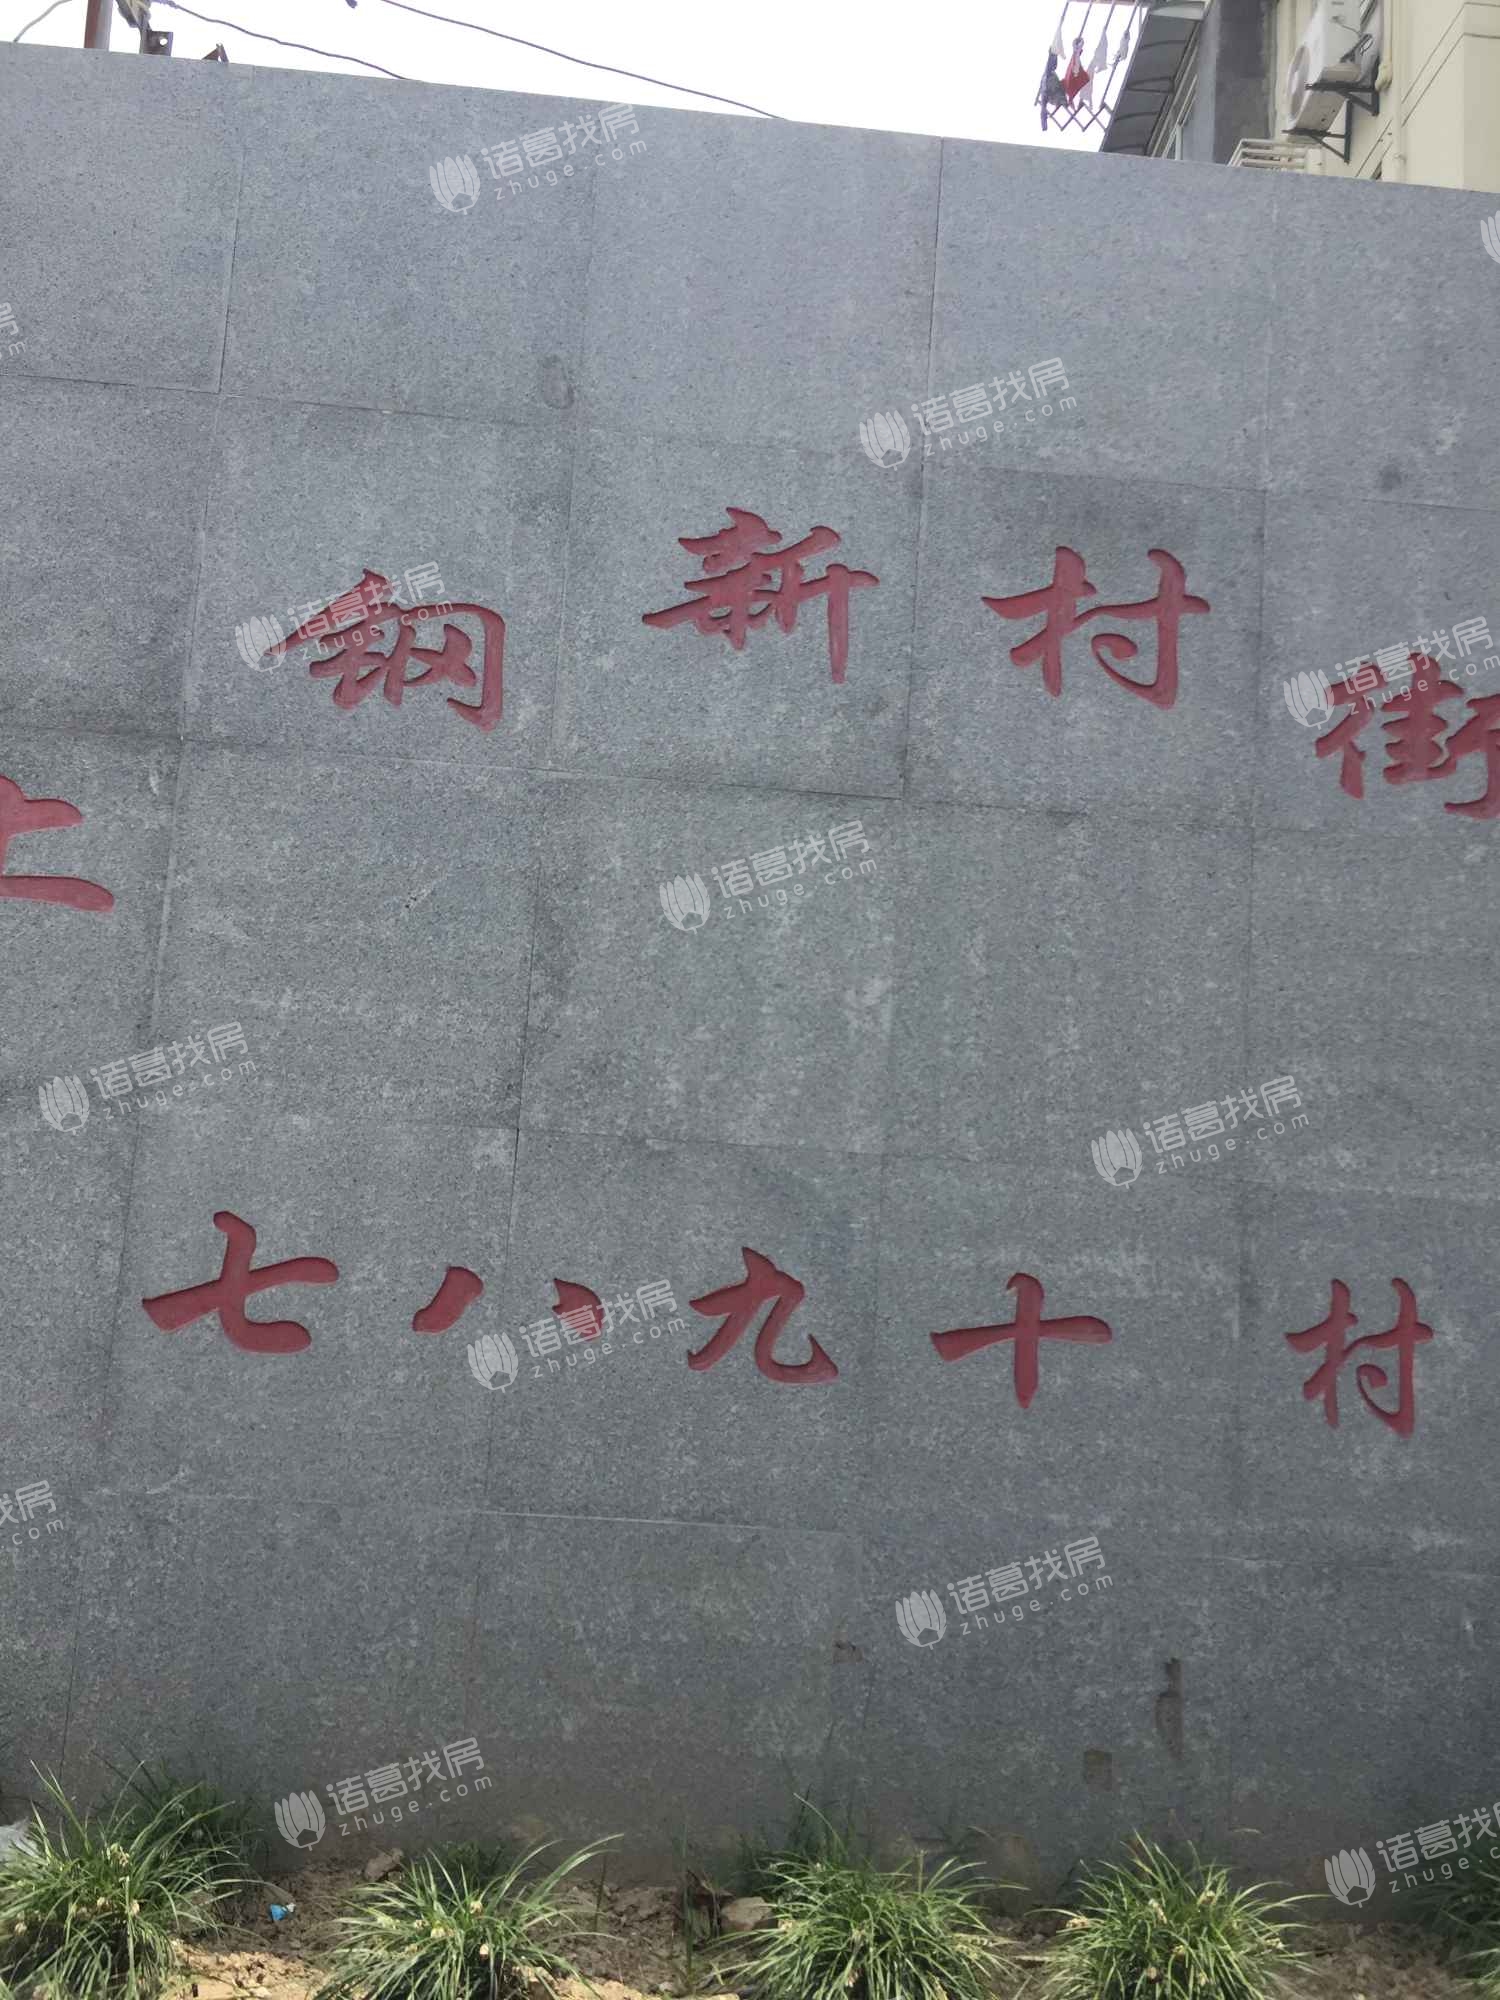 上钢新村街
七八九十村
诸葛找房
zhuge.com